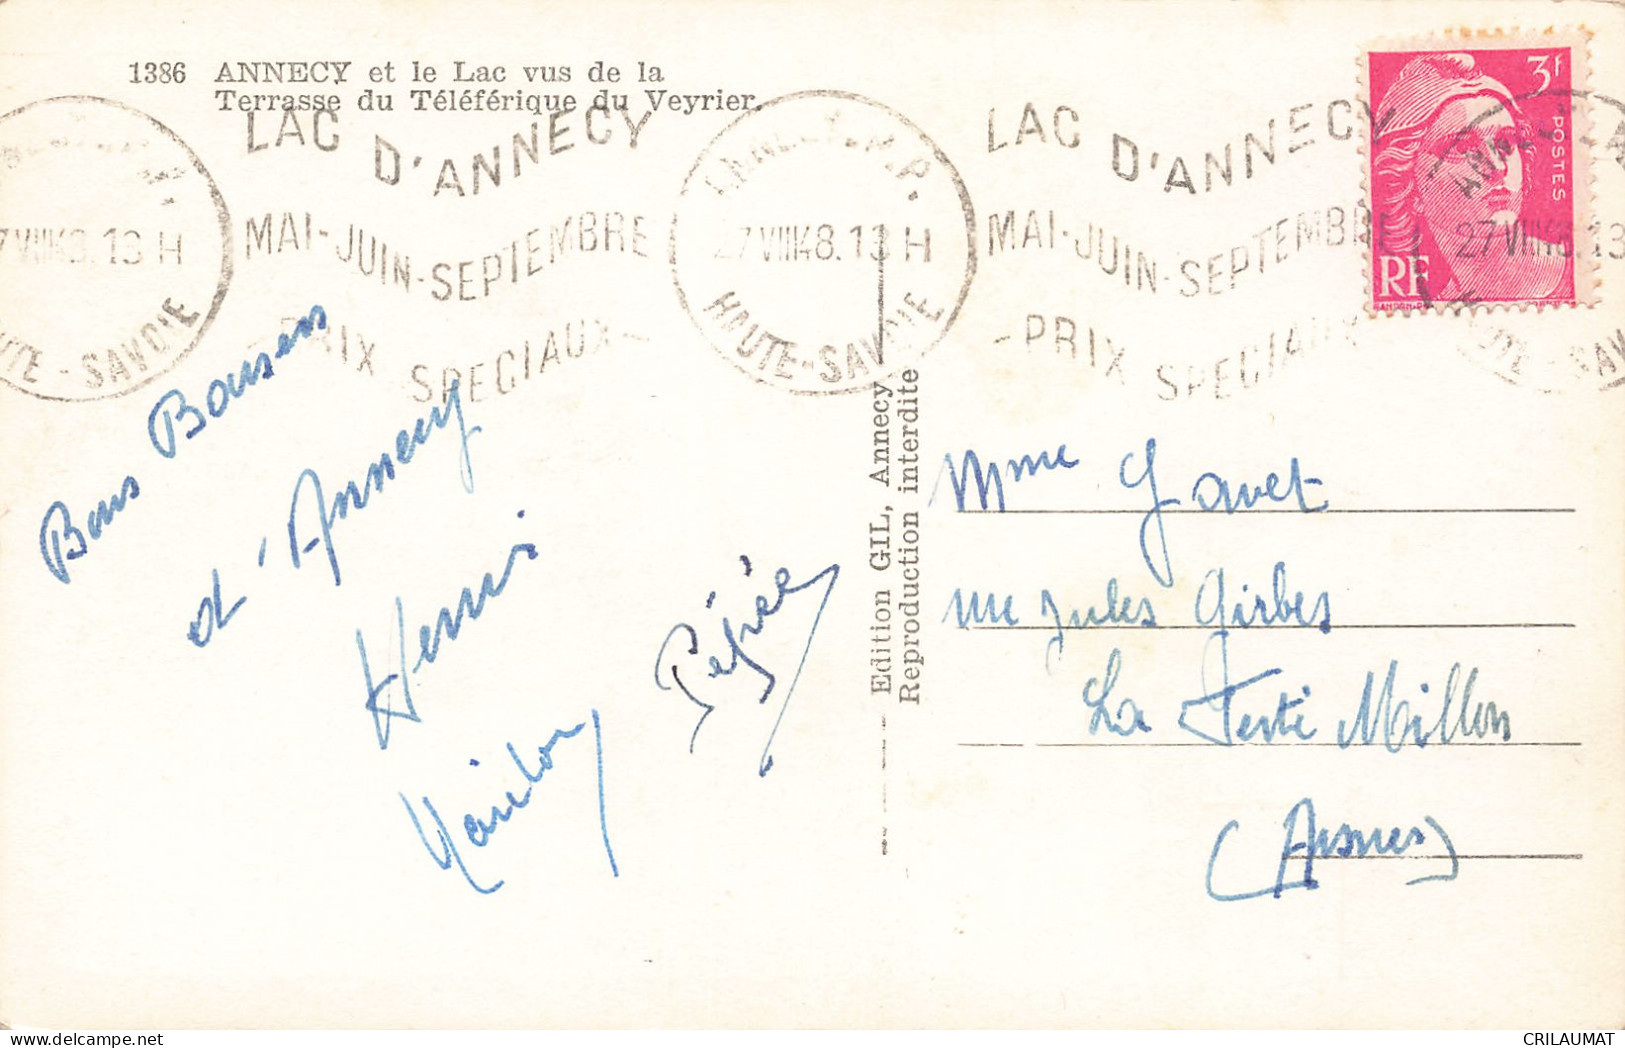 1386 ANNECY et le Lac vus de la
Terrasse du Téléférique du Veyrier.
LAC D'ANNECY
MAI-JUIN-SEPTEMBRE
PRIX SPECIAUX-
27 VIII 48. 13 H
HAUTE-SAVOIE
LAC D'ANNECY
MAI-JUIN-SEPTEMBRE
-PRIX SPECIAUX
3F
POSTES
RF
27 VIII 48. 13
7 VIII 48. 13 H
SAVOIE
Bons Baisers
d'Annecy
Pépée
Edition GIL, Annecy
Reproduction interdite
Mme Gavet
rue Jules Girbes
La Ferté Millon
(Aisnes)
CRILAUMAT